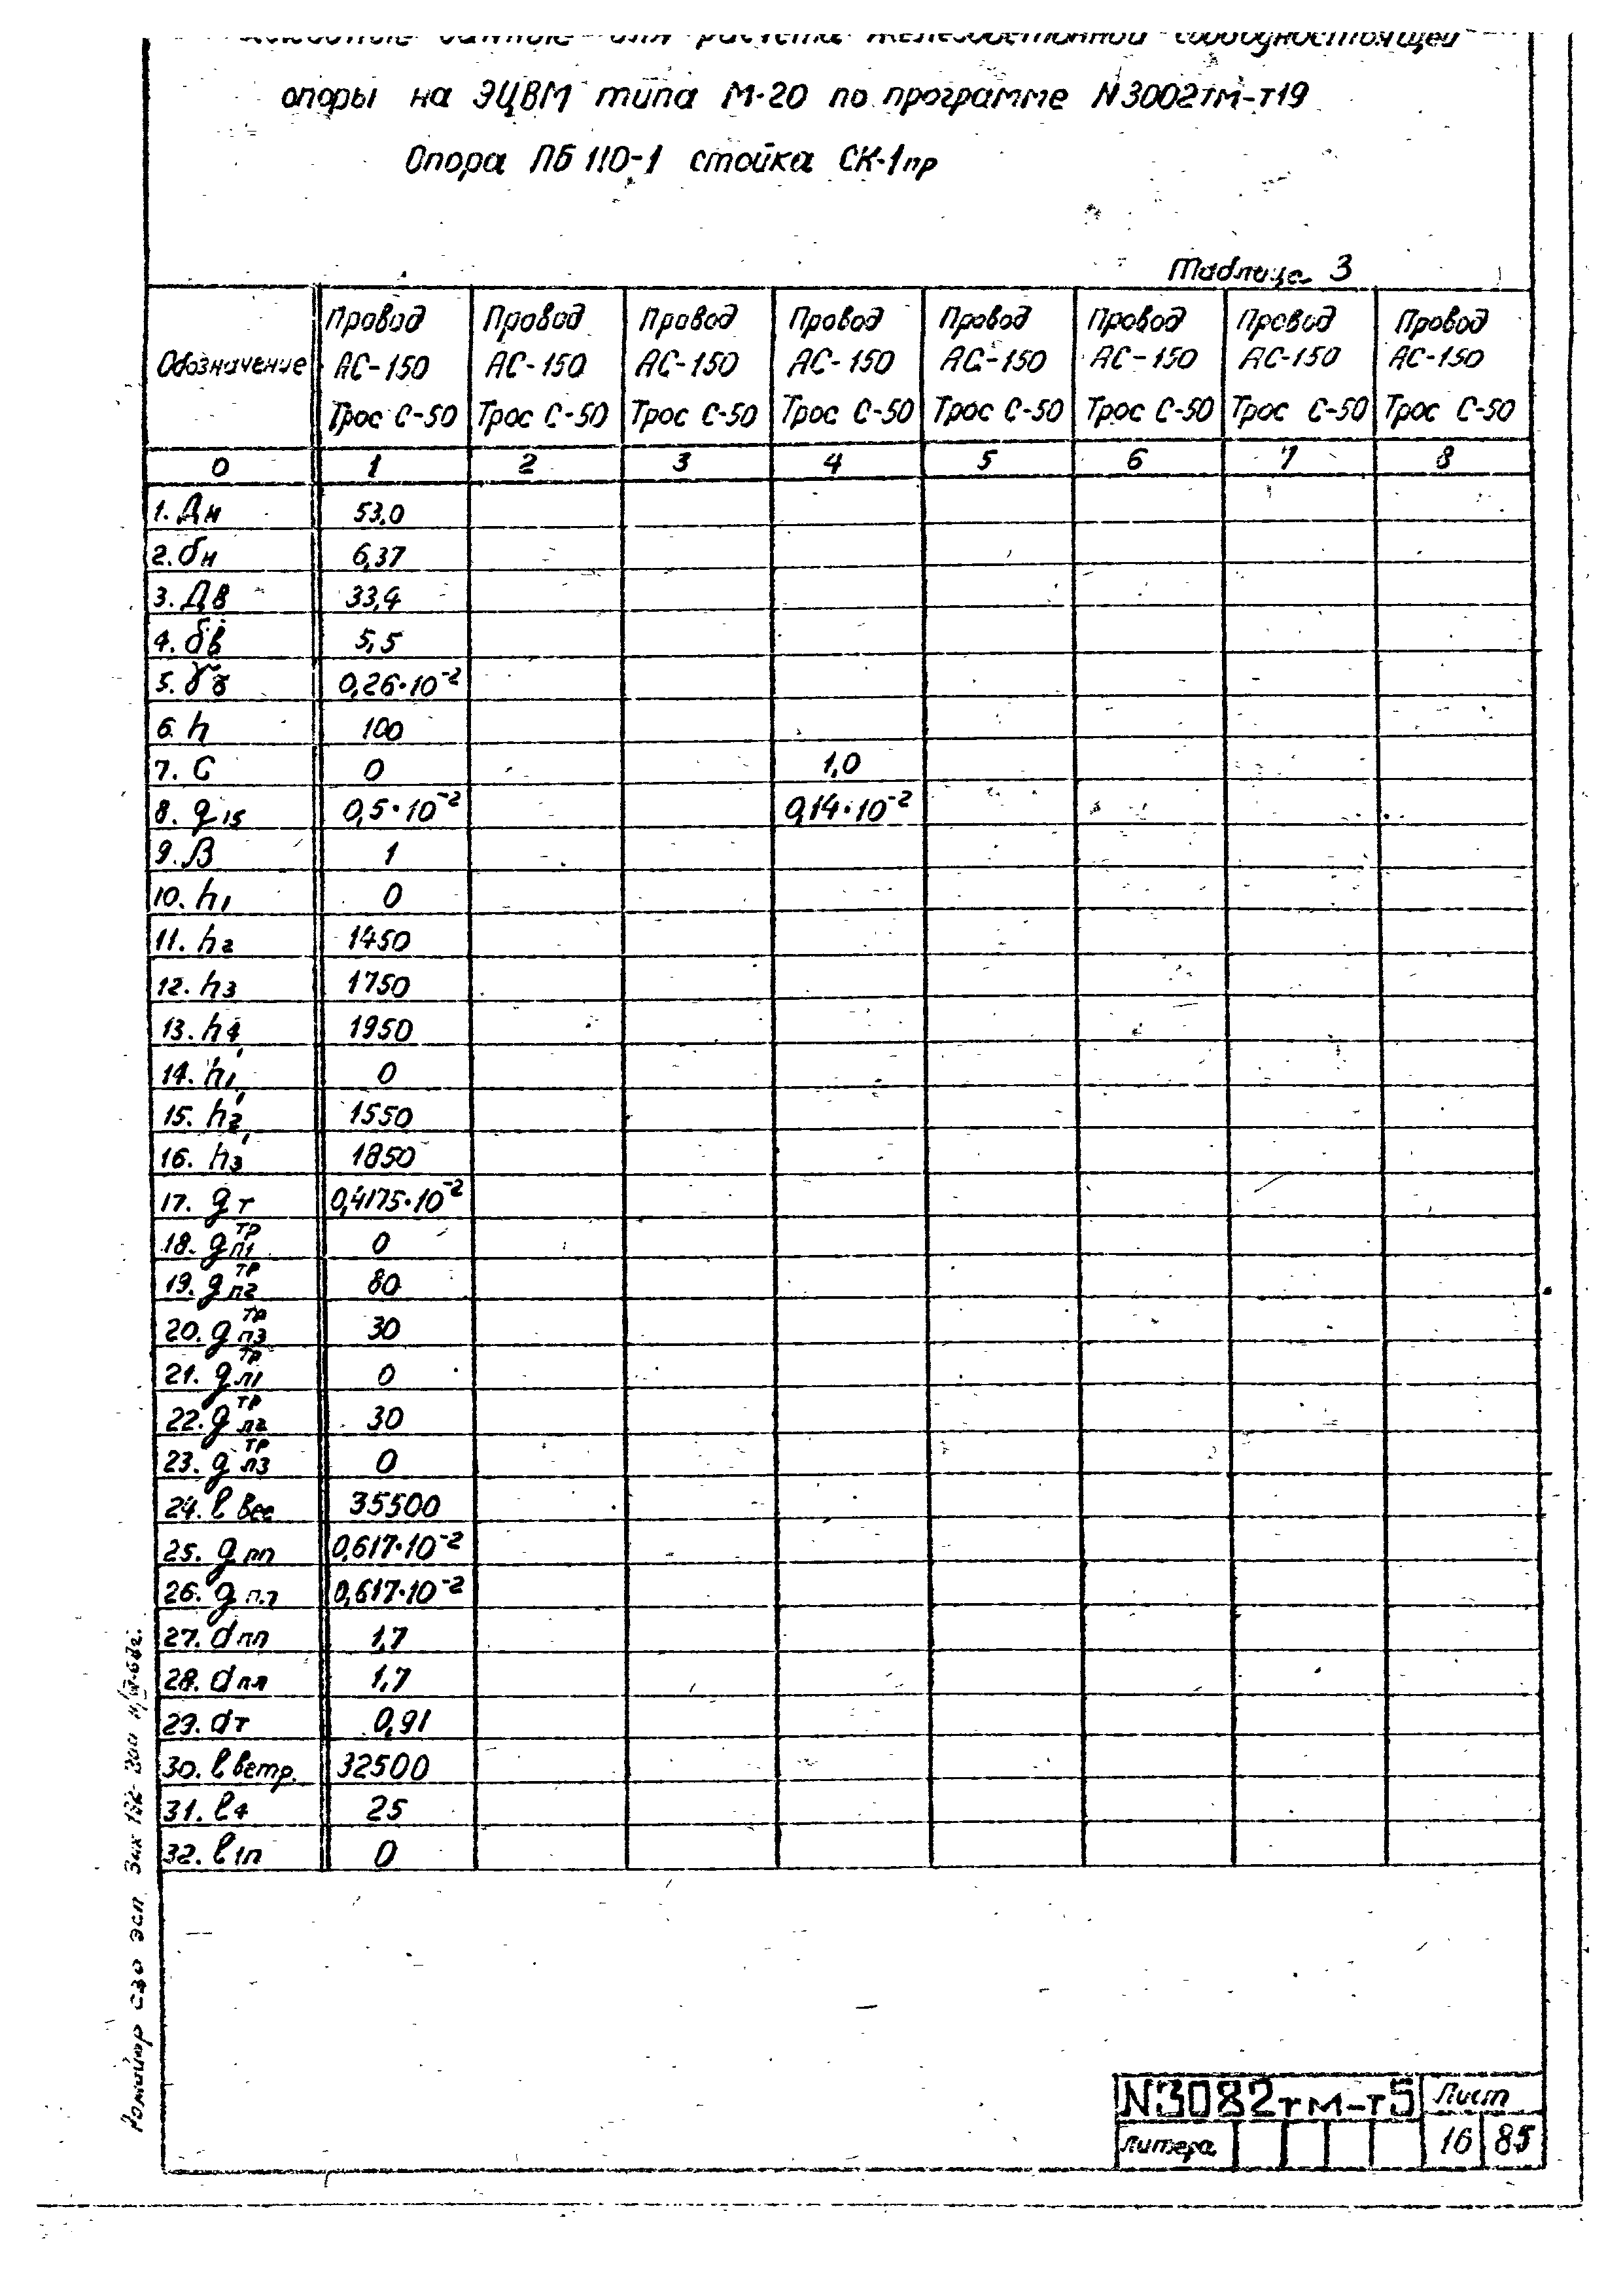 для расчета железобетонной свободностоящей
опоры на ЭЦВМ типа М-20 по программе N3002тм-т19
Опора ПБ 110-1 стойка СК-1пр
Таблица 3
Обозначение Провод АС-150 Трос С-50 Провод АС-150 Трос С-50 Провод АС-150 Трос С-50 Провод АС-150 Трос С-50 Провод АС-150 Трос С-50 Провод АС-150 Трос С-50 Провод АС-150 Трос С-50 Провод АС-150 Трос С-50
0 1 2 3 4 5 6 7 8
1. Дн 53,0
2. бн 6,37
3. Дв 33,4
4. бв 5,5
5. 0,26·10⁻²
6. h 100
7. С 0 1,0
8. q15 0,5·10⁻² 0,14·10⁻²
9. β 1
10. h1 0
11. h2 1450
12. h3 1750
13. h4 1950
14. h1' 0
15. h2' 1550
16. h3' 1850
17. gт 0,4175·10⁻²
18. gп1 тр 0
19. gп2 тр 80
20. gп3 тр 30
21. gл1 тр 0
22. gл2 тр 30
23. gл3 тр 0
24. ℓ вес 35500
25. g пп 0,617·10⁻²
26. g пл 0,617·10⁻²
27. d пп 1,7
28. d пл 1,7
29. dт 0,91
30. ℓ ветр. 32500
31. ℓ4 25
32. ℓ1п 0
СЗО ЭСП
N3082тм-т5 Лист
литера 16 85